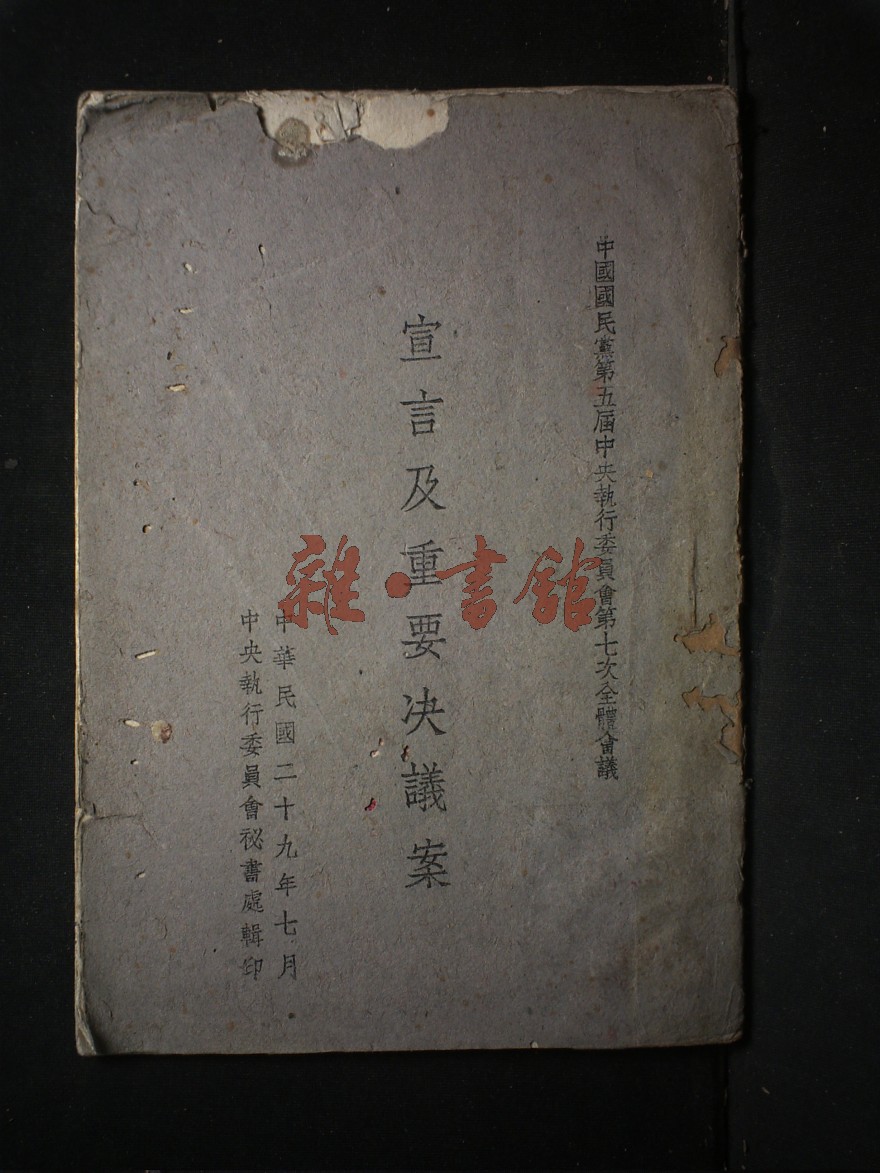 中國國民黨第五屆中央執行委員會第七次全體會議
宣言及重要決議案
中華民國二十九年七月
中央執行委員會祕書處輯印
雜·書館